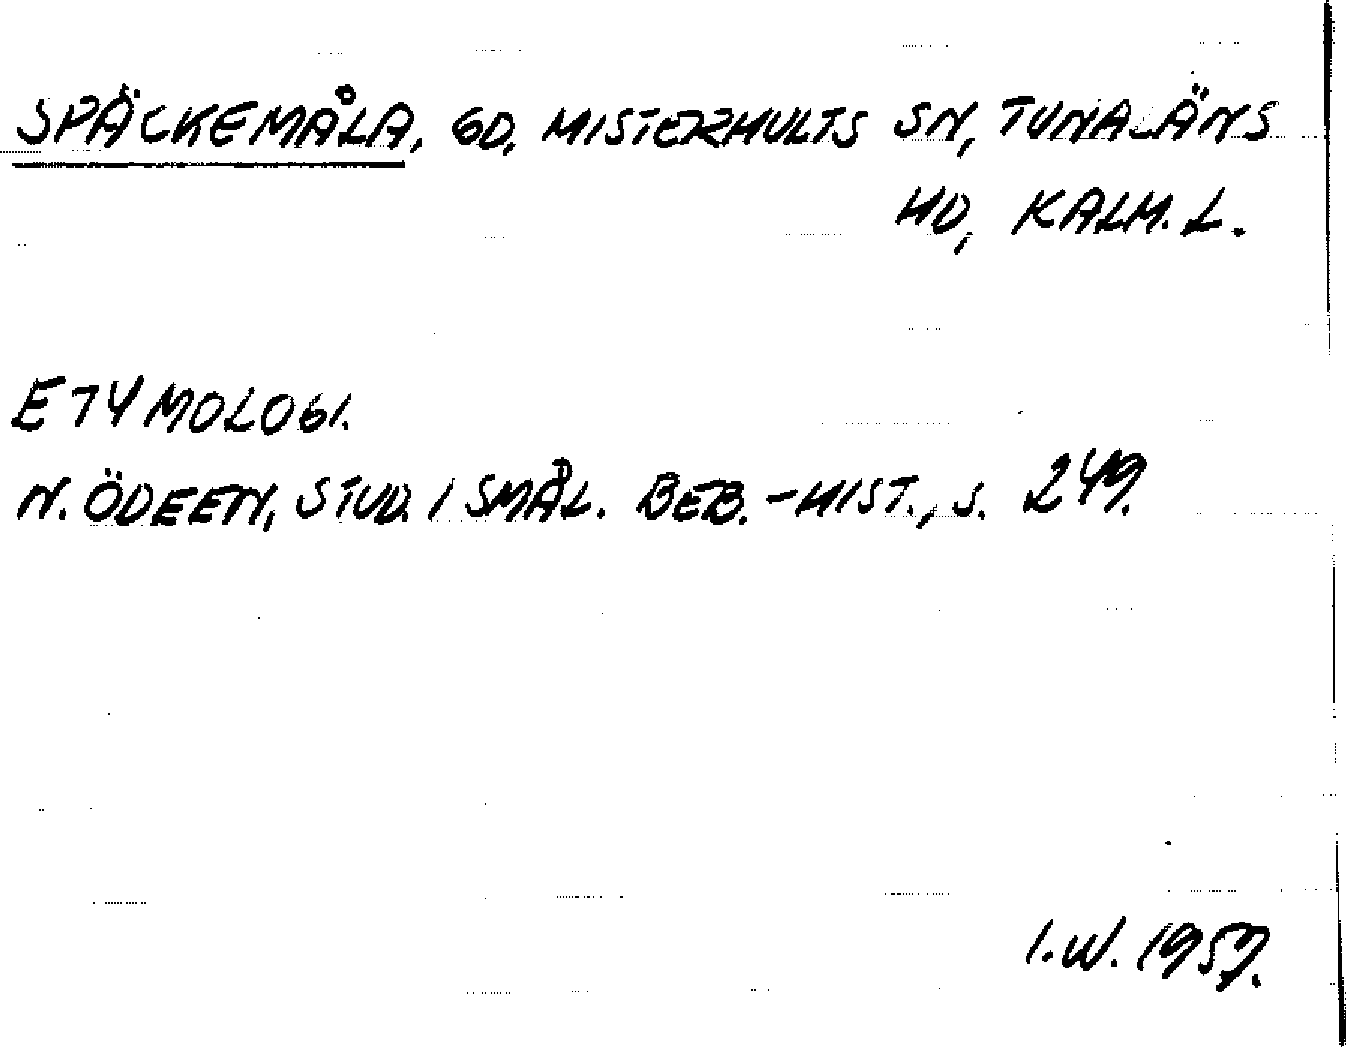 SPÄCKEMÅLA, GD, MISTERHULTS SN, TUNALÄNS
HD, KALM. L.
ETYMOLOGI.
N. ÖDEEN, STUD. I SMÅL. BEB.-HIST., S. 249.
I.W. 1957.